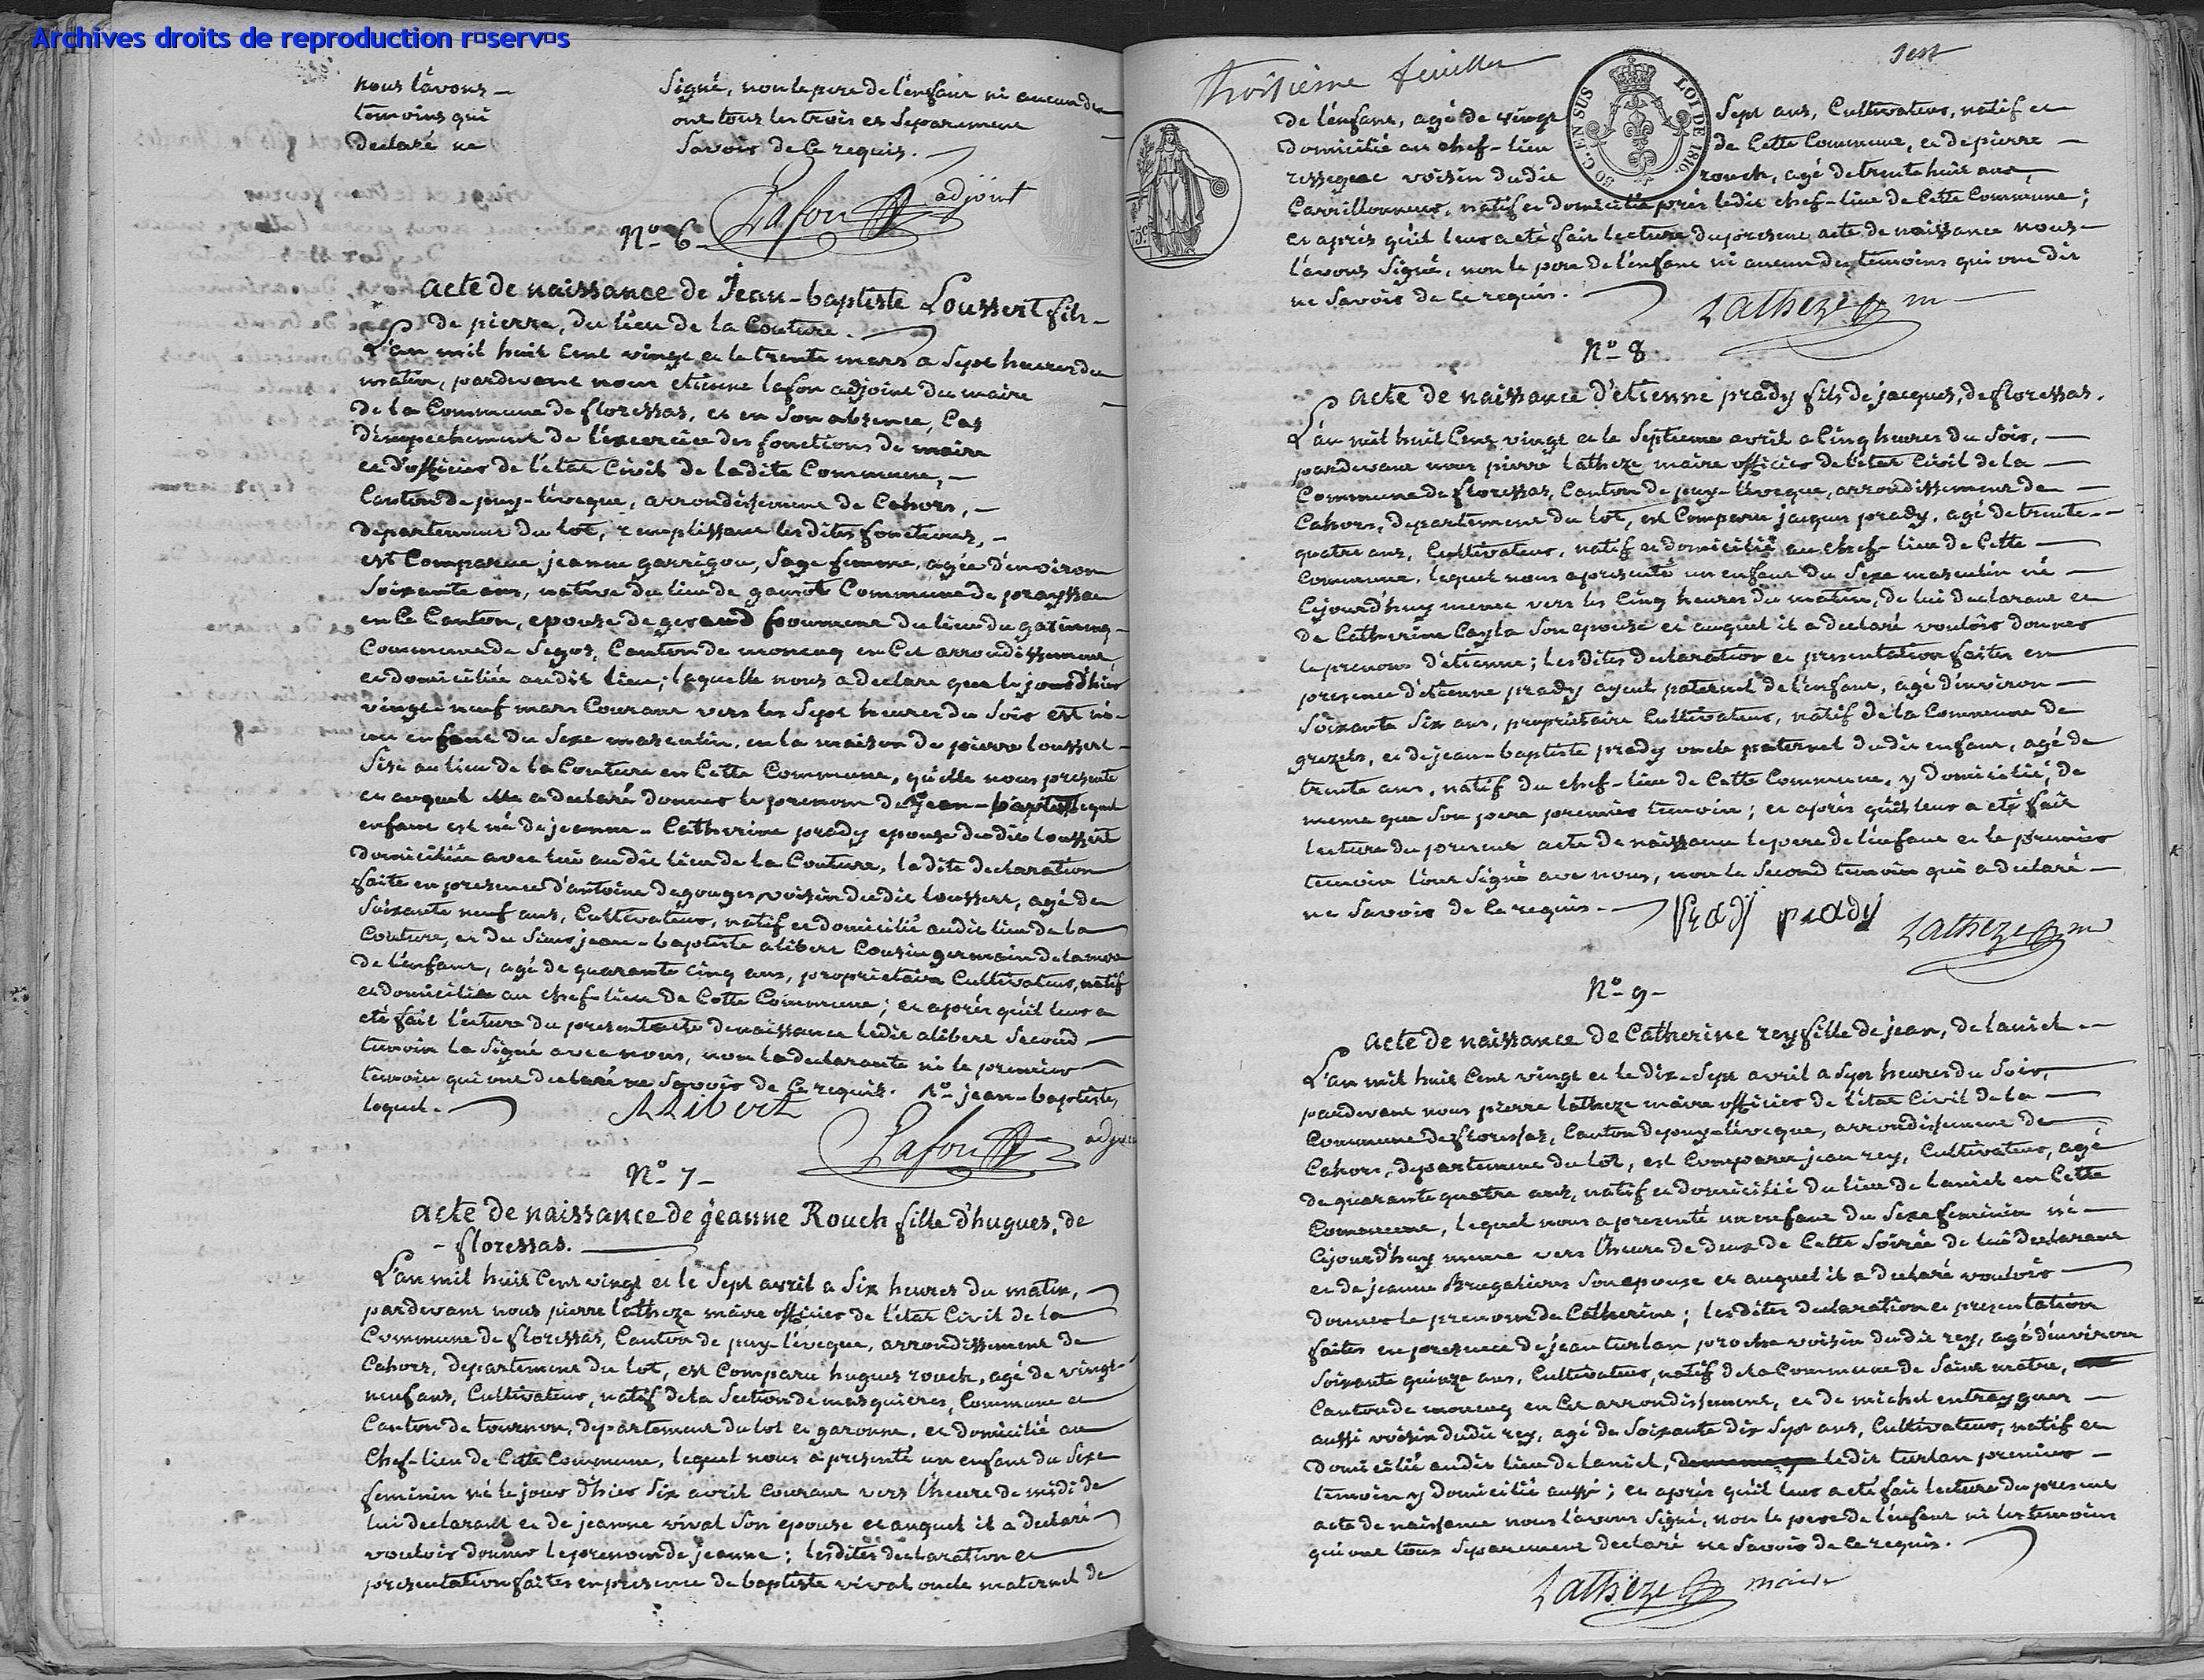 Archives droits de reproduction r□serv□s
nous l'avons signé, non le pere de l'enfant ni aucun des
temoins qui ont tous les trois et separement
declaré ne savoir de ce requis.
Lafon adjoint
N.o 6
acte de naissance de Jean-baptiste Loussert fils
de pierre, du lieu de la Couture.
L'an mil huit cent vingt et le trente mars a sept heures du
matin, pardevant nous etienne lafon adjoint du maire
de la Commune de floressas, et en son absence, cas
d'empechement de l'exercice des fonctions de maire
et d'officier de l'état Civil de ladite Commune,
Canton de puy-l'éveque, arrondissement de Cahors,
departement du lot, remplissant lesdites fonctions,
est Comparue jeanne garrigou, sage femme, agée d'environ
soixante ans, native du lieu de Commune de prayssac
en ce Canton, epouse de geraud fourment du lieu du
Commune de segos, Canton de moncuq en cet arrondissement,
et domiciliée audit lieu; laquelle nous a declaré que le jour d'hier
vingt-neuf mars Courant vers les sept heures du soir est né
un enfant du sexe masculin, en la maison de pierre loussert
sise au lieu de la Couture en cette Commune, qu'elle nous presente
et auquel elle a declaré donner le prenom de jean-baptiste lequel
enfant est né de jeanne-Catherine prady epouse dudit loussert
domiciliée avec lui audit lieu de la Couture, ladite declaration
faite en presence d'antoine degouges voisin dudit loussert, agé de
soixante neuf ans, Cultivateur, natif et domicilié audit lieu de la
Couture, et du sieur jean-baptiste alibert Cousin germain de la mere
de l'enfant, agé de quarante cinq ans, proprietaire Cultivateur, natif
et domicilié au chef-lieu de Cette Commune; et après qu'il leur a
eté fait lecture du present acte de naissance ledit alibert second
temoin la signé avec nous, non la declarante ni le premier
temoin qui ont declaré ne savoir de ce requis. jean-baptiste,
lequel.
Alibert
Lafon adjoint
N.o 7
acte de naissance de jeanne Rouch fille d'hugues, de
floressas.
L'an mil huit cent vingt et le sept avril a six heures du matin,
pardevant nous pierre latheze maire officier de l'état Civil de la
Commune de floressas, Canton de puy-l'éveque, arrondissement de
Cahors, departement du lot, est Comparu hugues rouch, agé de vingt
neuf ans, Cultivateur, natif de la section de masquieres, Commune et
Canton de tournon, departement du lot et garonne, et domicilié au
chef-lieu de Cette Commune, lequel nous a presenté un enfant du sexe
feminin né le jour d'hier six avril courant vers l'heure de midi de
lui declarant et de jeanne vival son epouse et auquel il a declaré
vouloir donner le prenom de jeanne; lesdites declaration et
presentation faites en presence de baptiste vival oncle maternel de
troisième feuillet
sept
50 C. EN SUS
LOI DE 1816.
75 c
de l'enfant, agé de vingt sept ans, Cultivateur, natif et
domicilié au chef-lieu de Cette Commune, et de pierre
ressegeac voisin dudit rouch, agé de trente huit ans,
Carrillonneur, natif et domicilié près ledit chef-lieu de Cette Commune;
et après qu'il leur a eté fait lecture du present acte de naissance nous
l'avons signé, non le pere de l'enfant ni aucun des temoins qui ont dit
ne savoir de ce requis.
Latheze m
N.o 8
acte de naissance d'etienne prady fils de jacques, de floressas.
L'an mil huit cent vingt et le septieme avril a Cinq heures du soir,
pardevant nous pierre latheze maire officier de l'état Civil de la
Commune de floressas, Canton de puy-l'éveque, arrondissement de
Cahors, departement du lot, est Comparu jacques prady, agé de trente
quatre ans, Cultivateur, natif et domicilié au chef-lieu de Cette
Commune, lequel nous a presenté un enfant du sexe masculin né
cejourd'huy meme vers les Cinq heures du matin, de lui declarant et
de Catherine Cayla son epouse et auquel il a declaré vouloir donner
le prenom d'etienne; lesdites declaration et presentation faites en
presence d'etienne prady ayeul paternel de l'enfant, agé d'environ
soixante six ans, proprietaire Cultivateur, natif de la Commune de
grezels, et de jean-baptiste prady oncle paternel dudit enfant, agé de
trente ans, natif du chef-lieu de Cette Commune, y domicilié, de
meme que son pere premier temoin; et après qu'il leur a eté fait
lecture du present acte de naissance le pere de l'enfant et le premier
temoin l'ont signé avec nous, non le second temoin qui a declaré
ne savoir de ce requis.
Prady prady Latheze m
N.o 9
acte de naissance de Catherine rey fille de jean, de laniel
L'an mil huit cent vingt et le dix-sept avril a sept heures du soir,
pardevant nous pierre latheze maire officier de l'état Civil de la
Commune de floressas, Canton de puy-l'éveque, arrondissement de
Cahors, departement du lot, est Comparu jean rey, Cultivateur, agé
de quarante quatre ans, natif et domicilié du lieu de laniel en Cette
Commune, lequel nous a presenté un enfant du sexe feminin né
cejourd'huy meme vers l'heure de deux de Cette soirée de lui declarant
et de jeanne Brugalieres son epouse et auquel il a declaré vouloir
donner le prenom de Catherine; lesdites declaration et presentation
faites en presence de jean turlan proche voisin dudit rey, agé d'environ
soixante quinze ans, Cultivateur, natif de la Commune de saint matre,
Canton de moncuq en cet arrondissement, et de michel entraygues
aussi voisin dudit rey, agé de soixante dix sept ans, Cultivateur, natif et
domicilié audit lieu de laniel, ledit turlan premier
temoin y domicilié aussi; et après qu'il leur a eté fait lecture du present
acte de naissance nous l'avons signé, non le pere de l'enfant ni les temoins
qui ont tous separement declaré ne savoir de ce requis.
Latheze maire